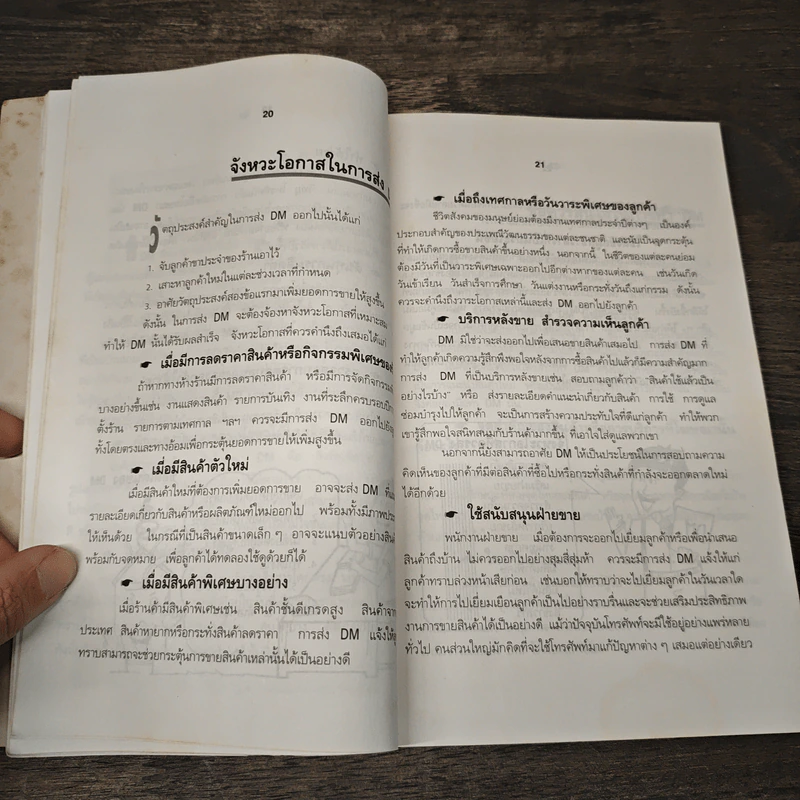 20
จังหวะโอกาสในการส่ง
วัตถุประสงค์สำคัญในการส่ง DM ออกไปนั้นได้แก่
1. จับลูกค้าขาประจำของร้านเอาไว้
2. เสาะหาลูกค้าใหม่ในแต่ละช่วงเวลาที่กำหนด
3. อาศัยวัตถุประสงค์สองข้อแรกมาเพิ่มยอดการขายให้สูงขึ้น
ดังนั้น ในการส่ง DM จะต้องจ้องหาจังหวะโอกาสที่เหมาะสม
ทำให้ DM นั้นได้รับผลสำเร็จ จังหวะโอกาสที่ควรคำนึงถึงเสมอได้แก่
เมื่อมีการลดราคาสินค้าหรือกิจกรรมพิเศษของ
ถ้าหากทางห้างร้านมีการลดราคาสินค้า หรือมีการจัดกิจกรรม
บางอย่างขึ้นเช่น งานแสดงสินค้า รายการบันเทิง งานที่ระลึกครบรอบปี
ตั้งร้าน รายการตามเทศกาล ฯลฯ ควรจะมีการส่ง DM ออกไปยัง
ทั้งโดยตรงและทางอ้อมเพื่อกระตุ้นยอดการขายให้เพิ่มสูงขึ้น
เมื่อมีสินค้าตัวใหม่
เมื่อมีสินค้าใหม่ที่ต้องการเพิ่มยอดการขาย อาจจะส่ง DM ที่
รายละเอียดเกี่ยวกับสินค้าหรือผลิตภัณฑ์ใหม่ออกไป พร้อมทั้งมีภาพ
ให้เห็นด้วย ในกรณีที่เป็นสินค้าขนาดเล็ก ๆ อาจจะแนบตัวอย่าง
พร้อมกับจดหมาย เพื่อลูกค้าได้ทดลองใช้ดูด้วยก็ได้
เมื่อมีสินค้าพิเศษบางอย่าง
เมื่อร้านค้ามีสินค้าพิเศษเช่น สินค้าชั้นดีเกรดสูง สินค้าจาก
ประเทศ สินค้าหายากหรือกระทั่งสินค้าลดราคา การส่ง DM แจ้งให้
ทราบสามารถจะช่วยกระตุ้นการขายสินค้าเหล่านั้นได้เป็นอย่างดี
21
เมื่อถึงเทศกาลหรือวันวาระพิเศษของลูกค้า
ชีวิตสังคมของมนุษย์ย่อมต้องมีงานเทศกาลประจำปีต่างๆ เป็นองค์
ประกอบสำคัญของประเพณีวัฒนธรรมของแต่ละชนชาติ และนับเป็นจุดกระตุ้น
ที่ทำให้เกิดการซื้อขายสินค้าขึ้นอย่างหนึ่ง นอกจากนี้ ในชีวิตของแต่ละคนย่อม
ต้องมีวันที่เป็นวาระพิเศษเฉพาะออกไปอีกต่างหากของแต่ละคน เช่นวันเกิด
วันเข้าเรียน วันสำเร็จการศึกษา วันแต่งงานหรือกระทั่งวันถึงแก่กรรม ดังนั้น
ควรจะคำนึงถึงวาระโอกาสเหล่านี้และส่ง DM ออกไปยังลูกค้า
บริการหลังขาย สำรวจความเห็นลูกค้า
DM มิใช่ว่าจะส่งออกไปเพื่อเสนอขายสินค้าเสมอไป การส่ง DM ที่
ทำให้ลูกค้าเกิดความรู้สึกพึงพอใจหลังจากการซื้อสินค้าไปแล้วก็มีความสำคัญมาก
การส่ง DM ที่เป็นบริการหลังขายเช่น สอบถามลูกค้าว่า "สินค้าใช้แล้วเป็น
อย่างไรบ้าง" หรือ ส่งรายละเอียดคำแนะนำเกี่ยวกับสินค้า การใช้ การดูแล
ซ่อมบำรุงไปให้ลูกค้า จะเป็นการสร้างความประทับใจที่ดีแก่ลูกค้า ทำให้พวก
เขารู้สึกพอใจสนิทสนมกับร้านค้ามากขึ้น ที่เอาใจใส่ดูแลพวกเขา
นอกจากนี้ยังสามารถอาศัย DM ให้เป็นประโยชน์ในการสอบถามความ
คิดเห็นของลูกค้าที่มีต่อสินค้าที่ซื้อไปหรือกระทั่งสินค้าที่กำลังจะออกตลาดใหม่
ได้อีกด้วย
ใช้สนับสนุนฝ่ายขาย
พนักงานฝ่ายขาย เมื่อต้องการจะออกไปเยี่ยมลูกค้าหรือเพื่อนำเสนอ
สินค้าถึงบ้าน ไม่ควรออกไปอย่างสุ่มสี่สุ่มห้า ควรจะมีการส่ง DM แจ้งให้แก่
ลูกค้าทราบล่วงหน้าเสียก่อน เช่นบอกให้ทราบว่าจะไปเยี่ยมลูกค้าในวันเวลาใด
จะทำให้การไปเยี่ยมเยือนลูกค้าเป็นไปอย่างราบรื่นและจะช่วยเสริมประสิทธิภาพ
งานการขายสินค้าได้เป็นอย่างดี แม้ว่าปัจจุบันโทรศัพท์จะมีใช้อยู่อย่างแพร่หลาย
ทั่วไป คนส่วนใหญ่มักคิดที่จะใช้โทรศัพท์มาแก้ปัญหาต่าง ๆ เสมอแต่อย่างเดียว